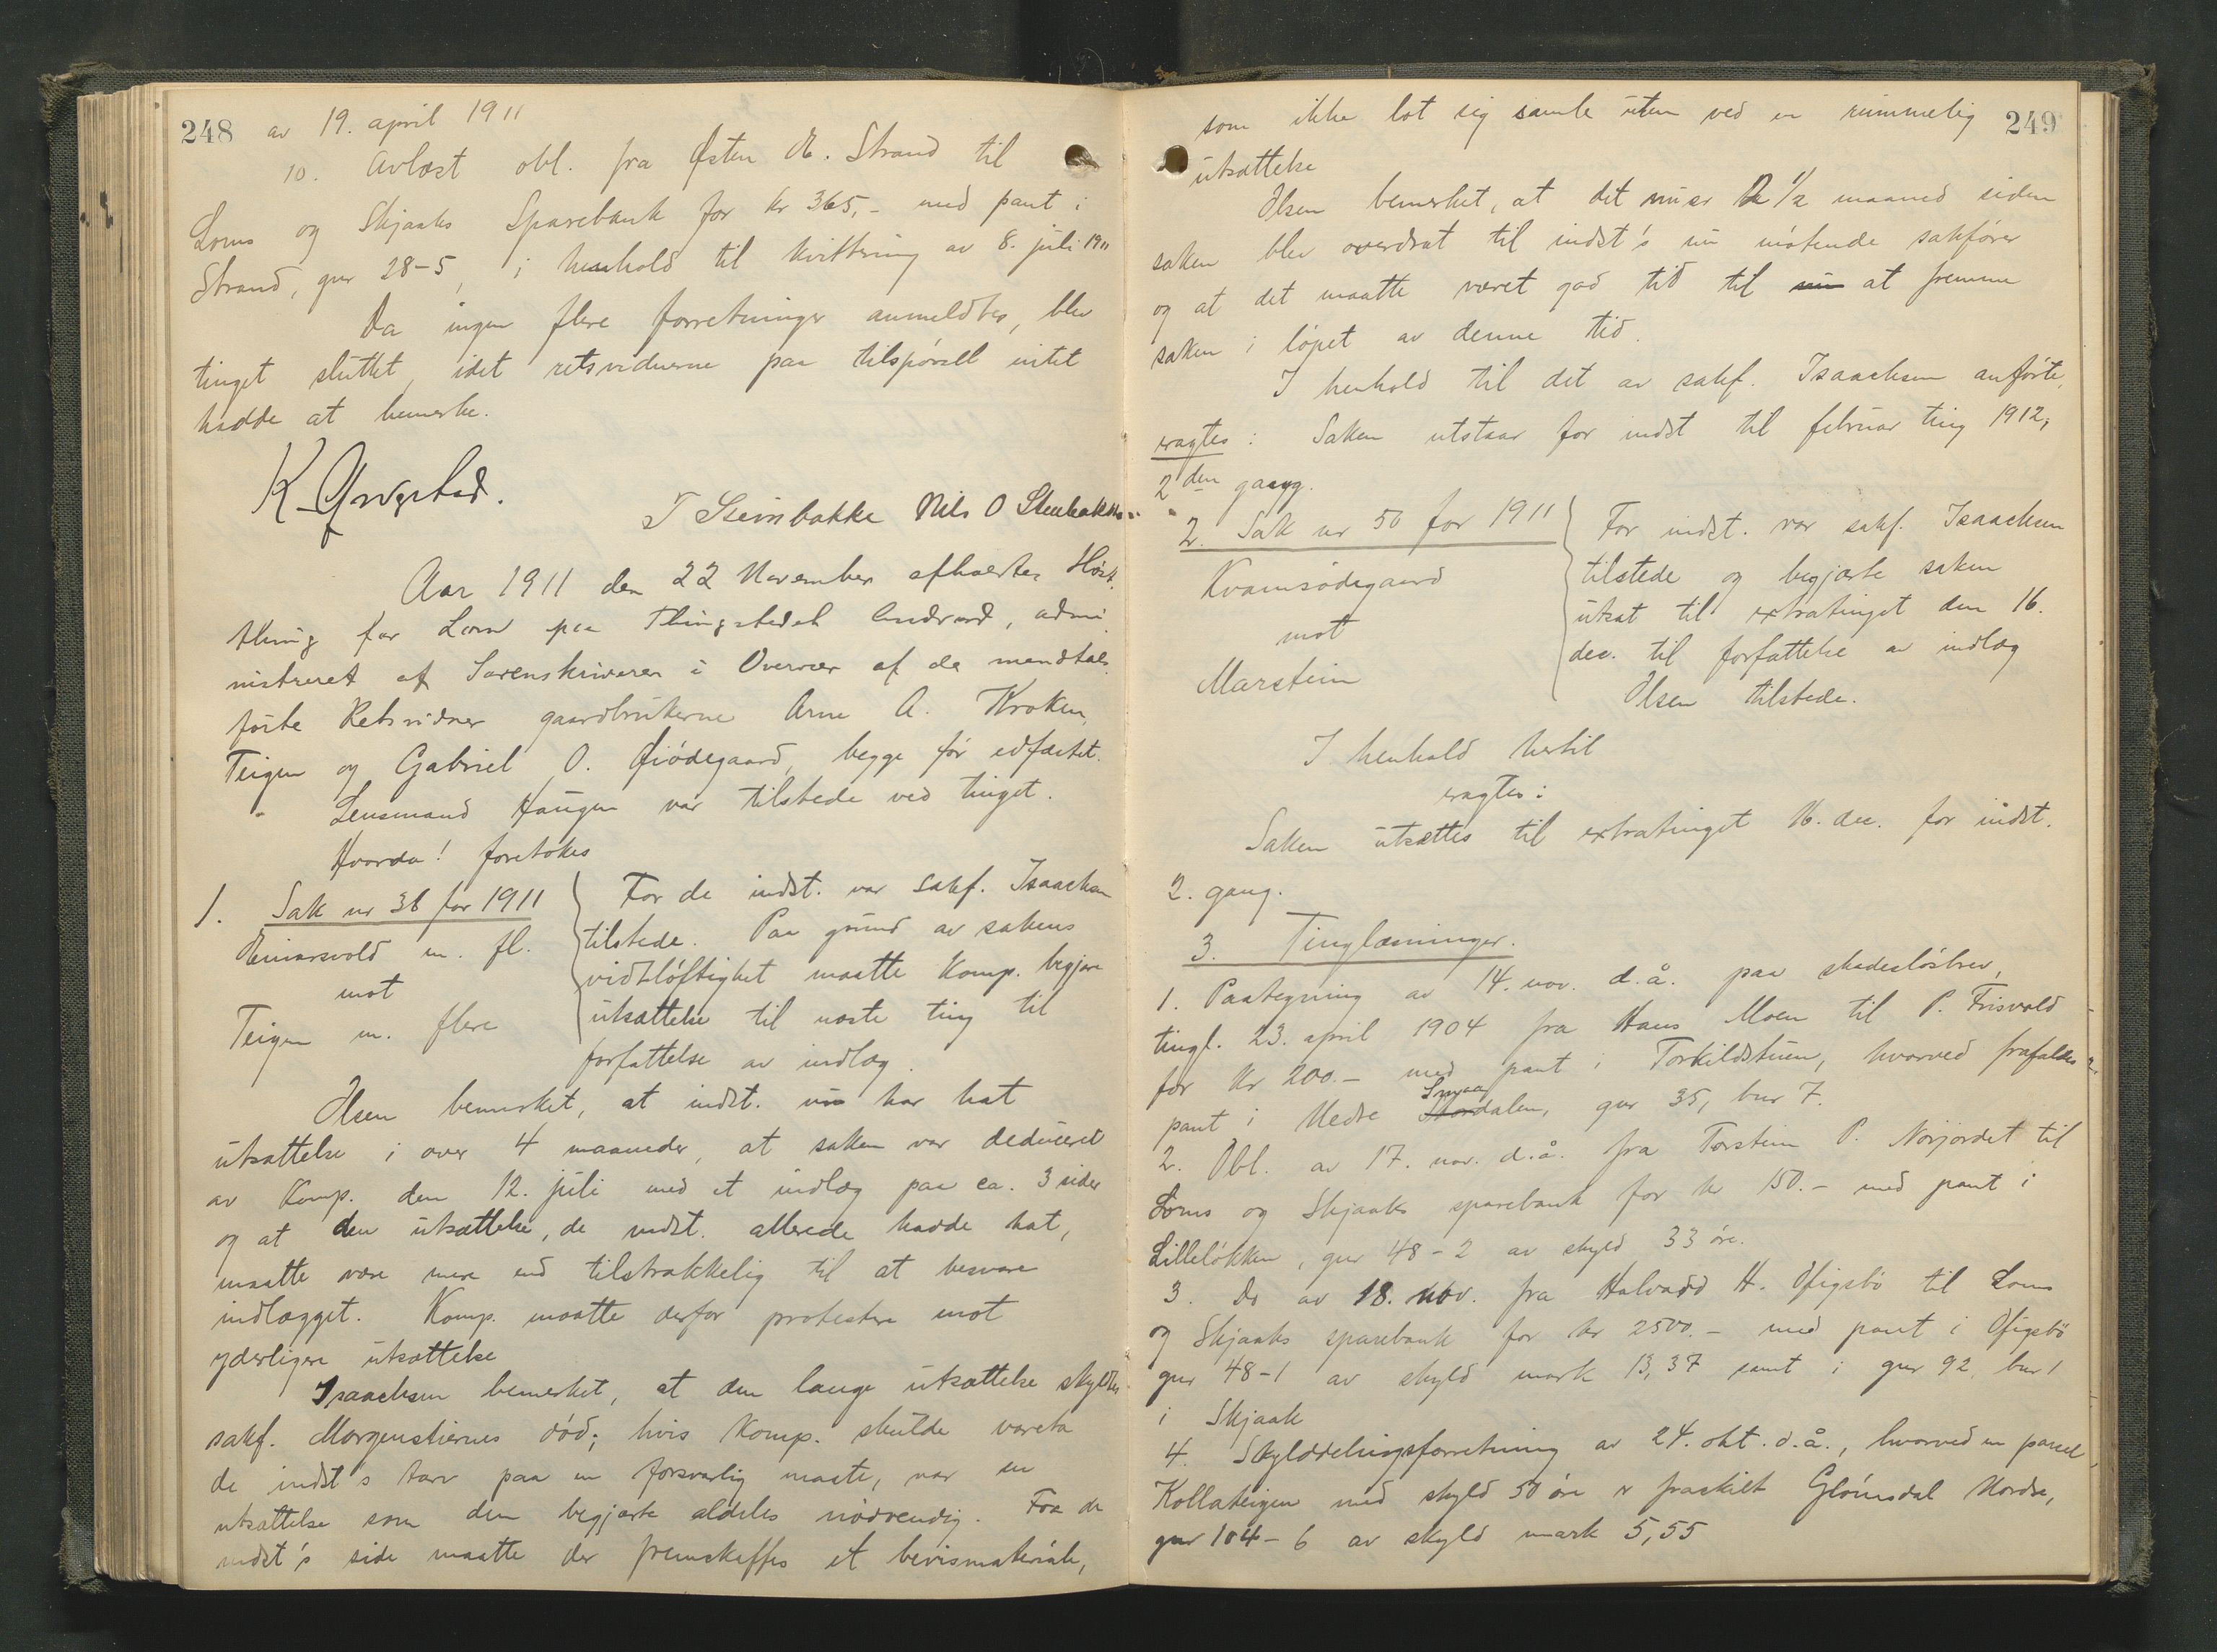 248 av 19. april 1911
10. Avlæst obl. fra Østen A. Strand til
Loms og Skjaaks Sparebank for kr 365,- med pant i
Strand, gnr 28-5, i henhold til kvittring av 8. juli 1911
Da ingen flere forretninger anmeldtes, blev
tinget sluttet, idet retsvidnerne paa tilspørsel intet
hadde at bemerke.
T Steinbakke Nils O Stenbakken
Aar 1911 den 22 November afholdtes Høst
thing for Lom paa Thingstedet Andvord, admi
nistreret af Sorenskriveren i Overvær af de mandtals
førte Retsvidner gaardbrukerne Arne A. Kroken,
Teigen og Gabriel O. Øiødegaard, begge før edfæstet.
Lensmand Haugen var tilstede ved tinget.
Hvorda! foretokes
1. Sak nr 36 for 1911
Einarsvold m. fl.
mot
Teigen m. flere
For de indst. var sakf. Isaachsen
tilstede. Paa grund av sakens
vidtløftighet maatte Komp. begjære
utsættelse til næste ting til
forfattelse av indlæg.
Olsen bemerket, at indst. nu har hat
utsættelse i over 4 maaneder, at saken var deduceret
av Komp. den 12. juli med et indlæg paa ca. 3 sider
og at den utsættelse, de indst. allerede hadde hat,
maatte være mere end tilstrækkelig til at besvare
indlægget. Komp. maatte derfor protestere mot
yderligere utsættelse
Isaachsen bemerket, at den lange utsættelse skyldtes
sakf. Morgenstiernes død; hvis Komp. skulde vareta
de indst's tarv paa en forsvarlig maate, var en
utsættelse som den begjærte aldeles nødvendig. Fra de
indst's side maatte der fremskaffes et bevismateriale,
249
som ikke lot sig samle uten ved en rummelig
utsættelse
Olsen bemerket, at det nu er 2 1/2 maaned siden
saken blev overdrat til indst's nu møtende sakfører
og at det maatte været god tid til nu at fremme
saken i løpet av denne tid.
I henhold til det av sakf. Isaachsen anførte,
eragtes: Saken utstaar for indst til februar ting 1912,
2den gang.
2. Sak nr 50 for 1911
Kvamsødegaard
mot
Marstein
For indst. var sakf. Isaachsen
tilstede og begjærte saken
utsat til extratinget den 16.
dec. til forfattelse av indlæg
Olsen tilstede.
I henhold hertil
eragtes:
Saken utsættes til extratinget 16. dec. for indst.
2. gang.
3. Tinglæsninger.
1. Paategning av 14. nov. d.å. paa skadesløsbrev,
tingl. 23. april 1904 fra Hans Moen til P. Frisvold
for kr 200.- med pant i Torkildstuen, hvorved frafaldes
pant i Nedre Smaadalen, gnr 35, bnr 7.
2. Obl. av 17. nov. d.å. fra Torstein P. Nørjordet til
Loms og Skjaaks sparebank for kr 150.- med pant i
Lilleløkken, gnr 48-2 av skyld 33 øre.
3. Do av 18. nov. fra Halvard H. Ofigsbø til Loms
og Skjaaks sparebank for kr 2500.- med pant i Ofigsbø
gnr 48-1 av skyld mark 13,37 samt i gnr 92, bnr 1
i Skjaak
4. Skylddelingsforretning av 24. okt. d.å., hvorved en parcel
Kollateigen med skyld 50 øre er fraskilt Glømsdal Nordre,
gnr 104-6 av skyld mark 5,55